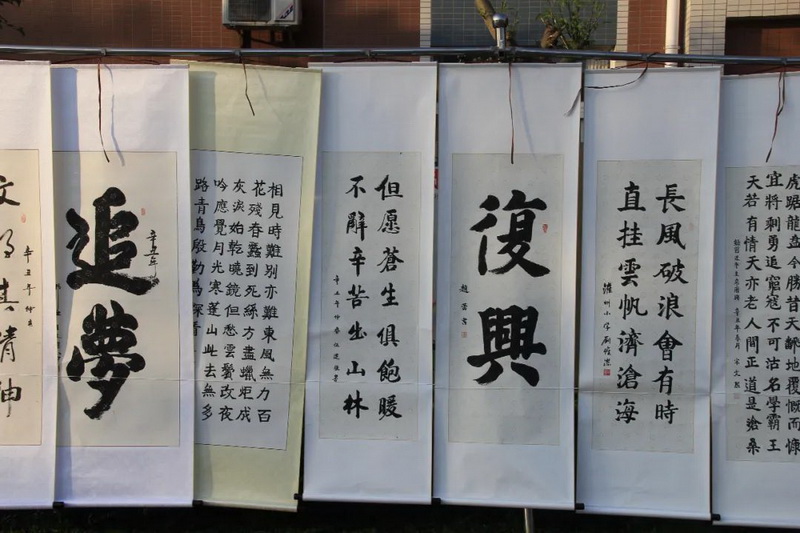 虎踞龍盤今勝昔天翻地覆慨而慷
宜將剩勇追窮寇不可沽名學霸王
天若有情天亦老人間正道是滄桑
長風破浪會有時
直挂雲帆濟滄海
復興
但愿蒼生俱飽暖
不辭辛苦出山林
相見時難別亦難東風無力百
花殘春蠶到死絲方盡蠟炬成
灰淚始乾曉鏡但愁雲鬢改夜
吟應覺月光寒蓬山此去無多
路青鳥殷勤為探看
追夢
辛丑年
文明其精神
辛丑年仲春